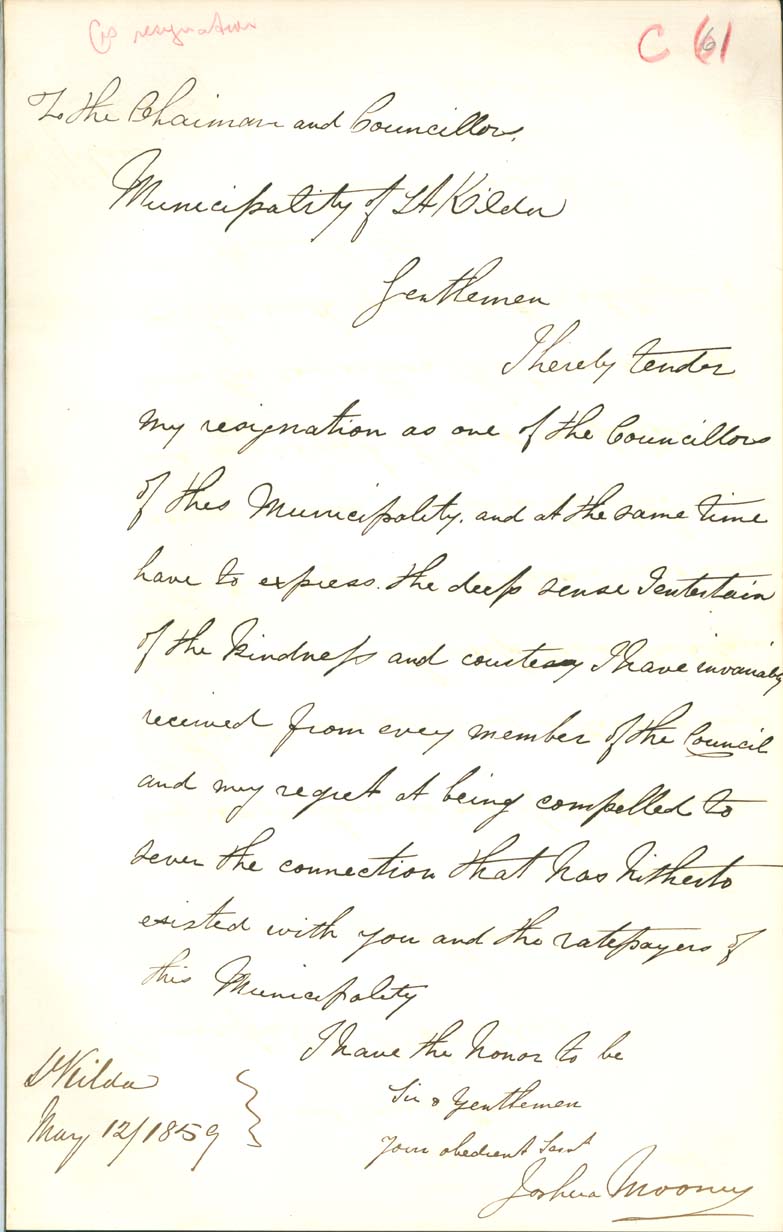 Crs resignation
C 61
To the Chairman and Councillors,
Municipality of St Kilda
Gentlemen
I hereby tender
my resignation as one of the Councillors
of this Municipality. and at the same time
have to express. the deep sense I entertain
of the kindness and courtesy I have invariably
received from every member of the Council
and my regret at being compelled to
sever the connection that has hitherto
existed with you and the ratepayers of
this Municipality
I have the honor to be
Sir & Gentlemen
Your obedient Servt
Joshua Mooney
St Kilda
May 12/1859